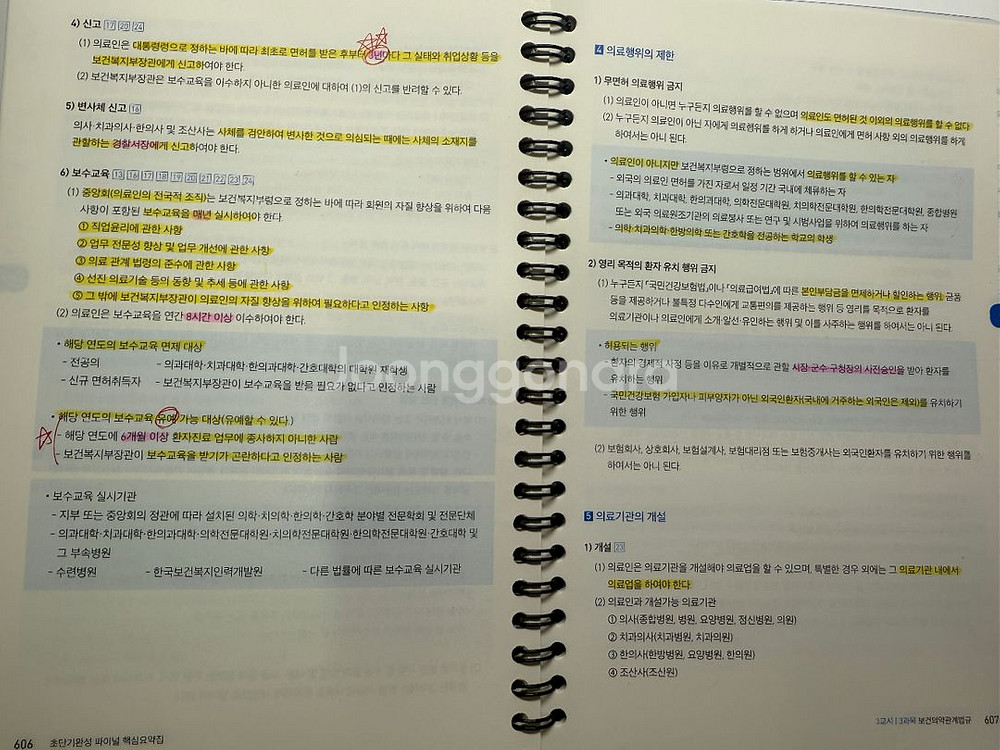 4) 신고 17 20 24
(1) 의료인은 대통령령으로 정하는 바에 따라 최초로 면허를 받은 후부터 3년마다 그 실태와 취업상황 등을
보건복지부장관에게 신고하여야 한다.
(2) 보건복지부장관은 보수교육을 이수하지 아니한 의료인에 대하여 (1)의 신고를 반려할 수 있다.
5) 변사체 신고 16
의사·치과의사·한의사 및 조산사는 사체를 검안하여 변사한 것으로 의심되는 때에는 사체의 소재지를
관할하는 경찰서장에게 신고하여야 한다.
6) 보수교육 13 16 17 18 19 20 21 22 23 24
(1) 중앙회(의료인의 전국적 조직)는 보건복지부령으로 정하는 바에 따라 회원의 자질 향상을 위하여 다음
사항이 포함된 보수교육을 매년 실시하여야 한다.
① 직업윤리에 관한 사항
② 업무 전문성 향상 및 업무 개선에 관한 사항
③ 의료 관계 법령의 준수에 관한 사항
④ 선진 의료기술 등의 동향 및 추세 등에 관한 사항
⑤ 그 밖에 보건복지부장관이 의료인의 자질 향상을 위하여 필요하다고 인정하는 사항
(2) 의료인은 보수교육을 연간 8시간 이상 이수하여야 한다.
• 해당 연도의 보수교육 면제 대상
- 전공의 - 의과대학·치과대학·한의과대학·간호대학의 대학원 재학생
- 신규 면허취득자 - 보건복지부장관이 보수교육을 받을 필요가 없다고 인정하는 사람
• 해당 연도의 보수교육 유예 가능 대상(유예할 수 있다.)
- 해당 연도에 6개월 이상 환자진료 업무에 종사하지 아니한 사람
- 보건복지부장관이 보수교육을 받기가 곤란하다고 인정하는 사람
• 보수교육 실시기관
- 지부 또는 중앙회의 정관에 따라 설치된 의학·치의학·한의학·간호학 분야별 전문학회 및 전문단체
- 의과대학·치과대학·한의과대학·의학전문대학원·치의학전문대학원·한의학전문대학원·간호대학 및
그 부속병원
- 수련병원 - 한국보건복지인력개발원 - 다른 법률에 따른 보수교육 실시기관
606 초단기완성 파이널 핵심요약집
4 의료행위의 제한
1) 무면허 의료행위 금지
(1) 의료인이 아니면 누구든지 의료행위를 할 수 없으며 의료인도 면허된 것 이외의 의료행위를 할 수 없다
(2) 누구든지 의료인이 아닌 자에게 의료행위를 하게 하거나 의료인에게 면허 사항 외의 의료행위를 하게
하여서는 아니 된다.
• 의료인이 아니지만 보건복지부령으로 정하는 범위에서 의료행위를 할 수 있는 자
- 외국의 의료인 면허를 가진 자로서 일정 기간 국내에 체류하는 자
- 의과대학, 치과대학, 한의과대학, 의학전문대학원, 치의학전문대학원, 한의학전문대학원, 종합병원
또는 외국 의료원조기관의 의료봉사 또는 연구 및 시범사업을 위하여 의료행위를 하는 자
- 의학·치과의학·한방의학 또는 간호학을 전공하는 학교의 학생
2) 영리 목적의 환자 유치 행위 금지
(1) 누구든지 「국민건강보험법」이나 「의료급여법」에 따른 본인부담금을 면제하거나 할인하는 행위, 금품
등을 제공하거나 불특정 다수인에게 교통편의를 제공하는 행위 등 영리를 목적으로 환자를
의료기관이나 의료인에게 소개·알선·유인하는 행위 및 이를 사주하는 행위를 하여서는 아니 된다.
• 허용되는 행위
- 환자의 경제적 사정 등을 이유로 개별적으로 관할 시장·군수·구청장의 사전승인을 받아 환자를
유치하는 행위
- 국민건강보험 가입자나 피부양자가 아닌 외국인환자(국내에 거주하는 외국인은 제외)를 유치하기
위한 행위
(2) 보험회사, 상호회사, 보험설계사, 보험대리점 또는 보험중개사는 외국인환자를 유치하기 위한 행위를
하여서는 아니 된다.
5 의료기관의 개설
1) 개설 23
(1) 의료인은 의료기관을 개설해야 의료업을 할 수 있으며, 특별한 경우 외에는 그 의료기관 내에서
의료업을 하여야 한다
(2) 의료인과 개설가능 의료기관
① 의사(종합병원, 병원, 요양병원, 정신병원, 의원)
② 치과의사(치과병원, 치과의원)
③ 한의사(한방병원, 요양병원, 한의원)
④ 조산사(조산원)
3교시 | 3과목 보건의약관계법규 607